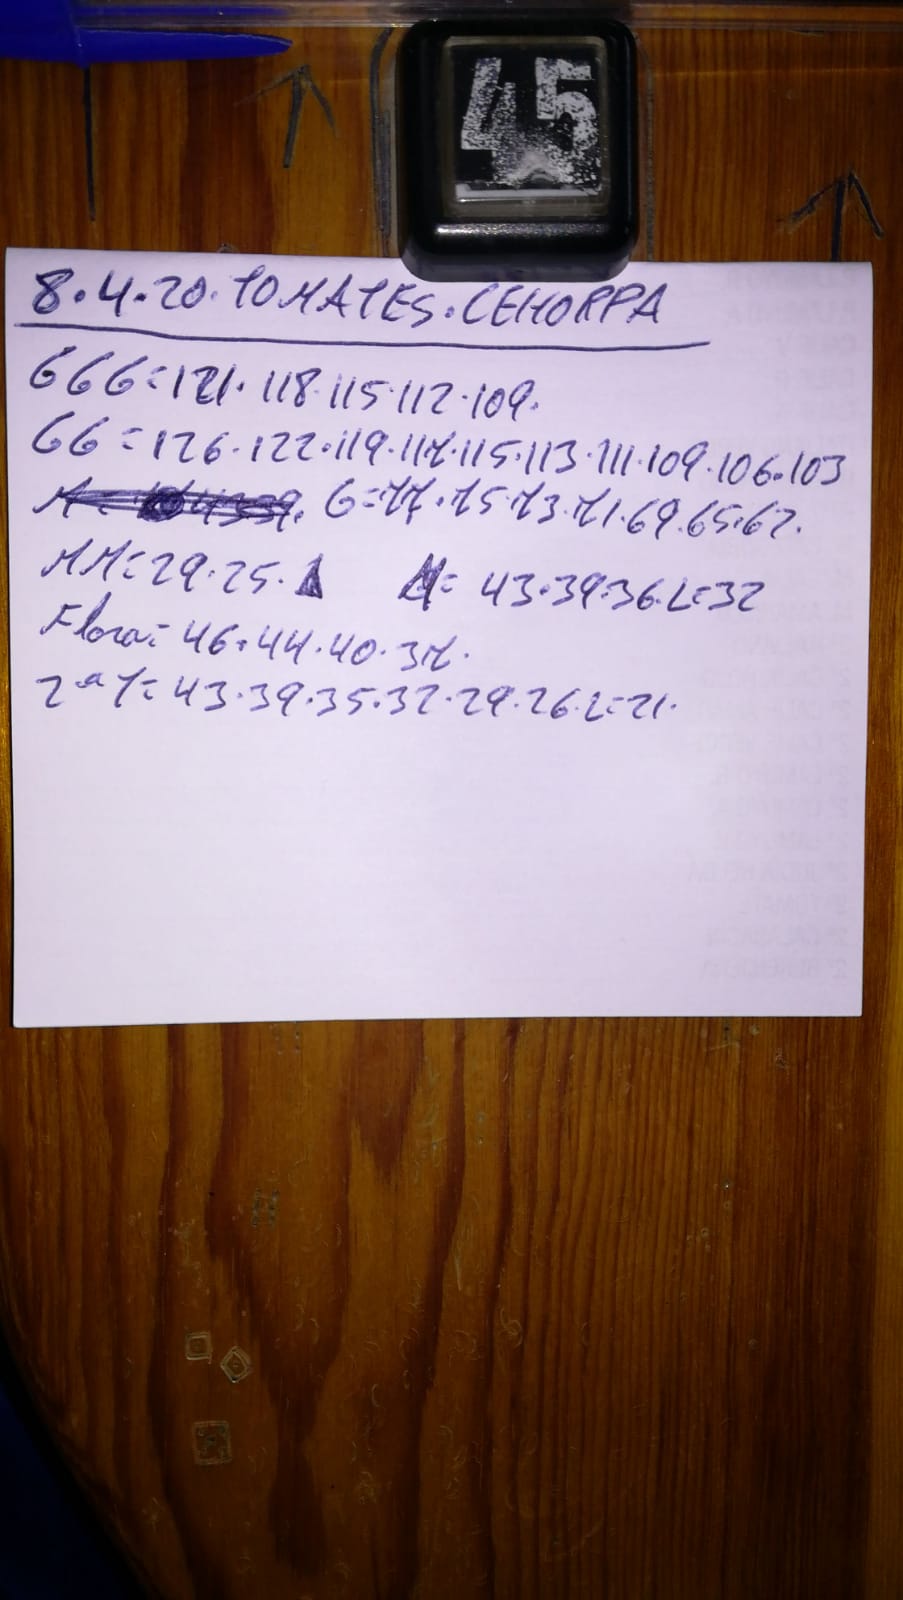 45
8.4.20.TOMATES.CEHORPA
GGG=121.118.115.112.109.
GG=126.122.119.117.115.113.111.109.106.103
G=77.75.73.71.69.65.62.
MM=29.25. M=43.39.36.L=32
Flora=46.44.40.37.
2ªT=43.39.35.32.29.26.L=21.